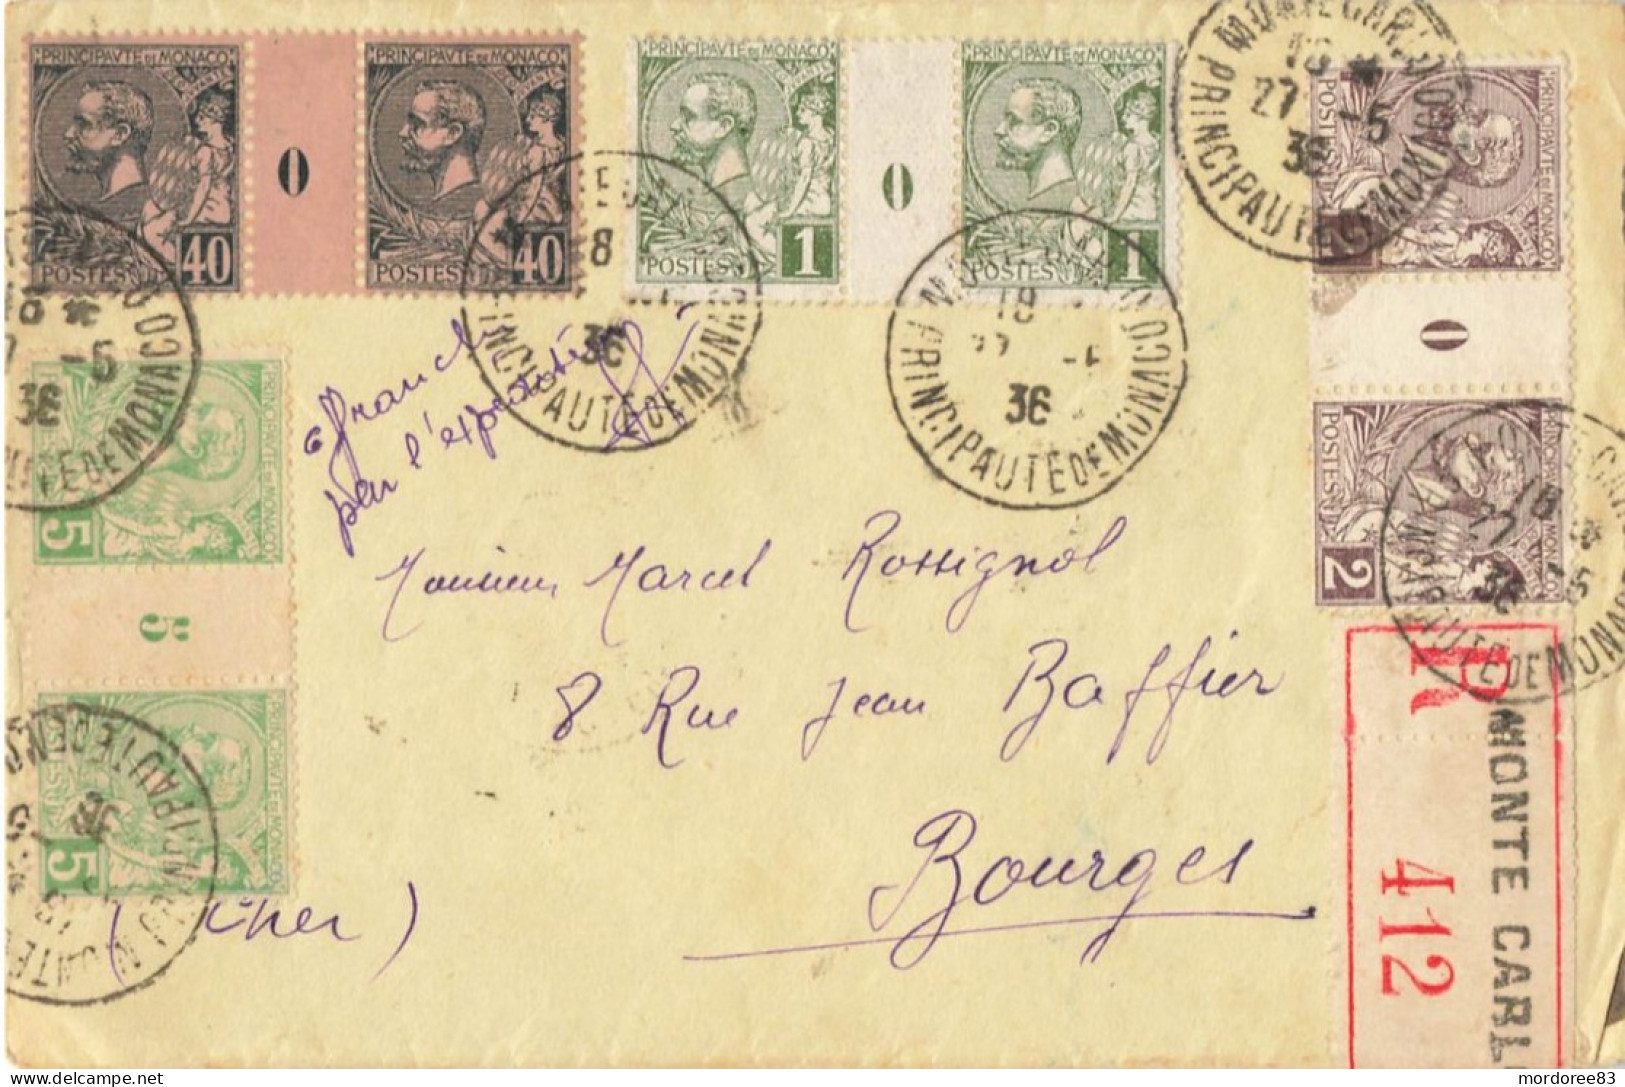 PRINCIPAVTE DE MONACO
40
POSTES
0
PRINCIPAVTE DE MONACO
40
POSTES
PRINCIPAVTE DE MONACO
1
POSTES
0
PRINCIPAVTE DE MONACO
1
POSTES
MONTE CARLO
18 *
27 -5
36
PRINCIPAUTE DE MONACO
PRINCIPAVTE DE MONACO
POSTES
0
PRINCIPAVTE DE MONACO
POSTES
2
18 *
-5
36
PRINCIPAUTE DE MONACO
18
36
PRINCIPAUTE DE MONACO
18
27
36
PRINCIPAUTE DE MONACO
18
27 -5
36
PRINCIPAVTE DE MONACO
5
5
PRINCIPAVTE DE MONACO
5
36
PRINCIPAUTE DE MONACO
Affranchi
par l'expéditeur
Monsieur Marcel Rossignol
8 Rue Jean Baffier
Bourges
(Cher)
R
MONTE CARL
412
mordoree83